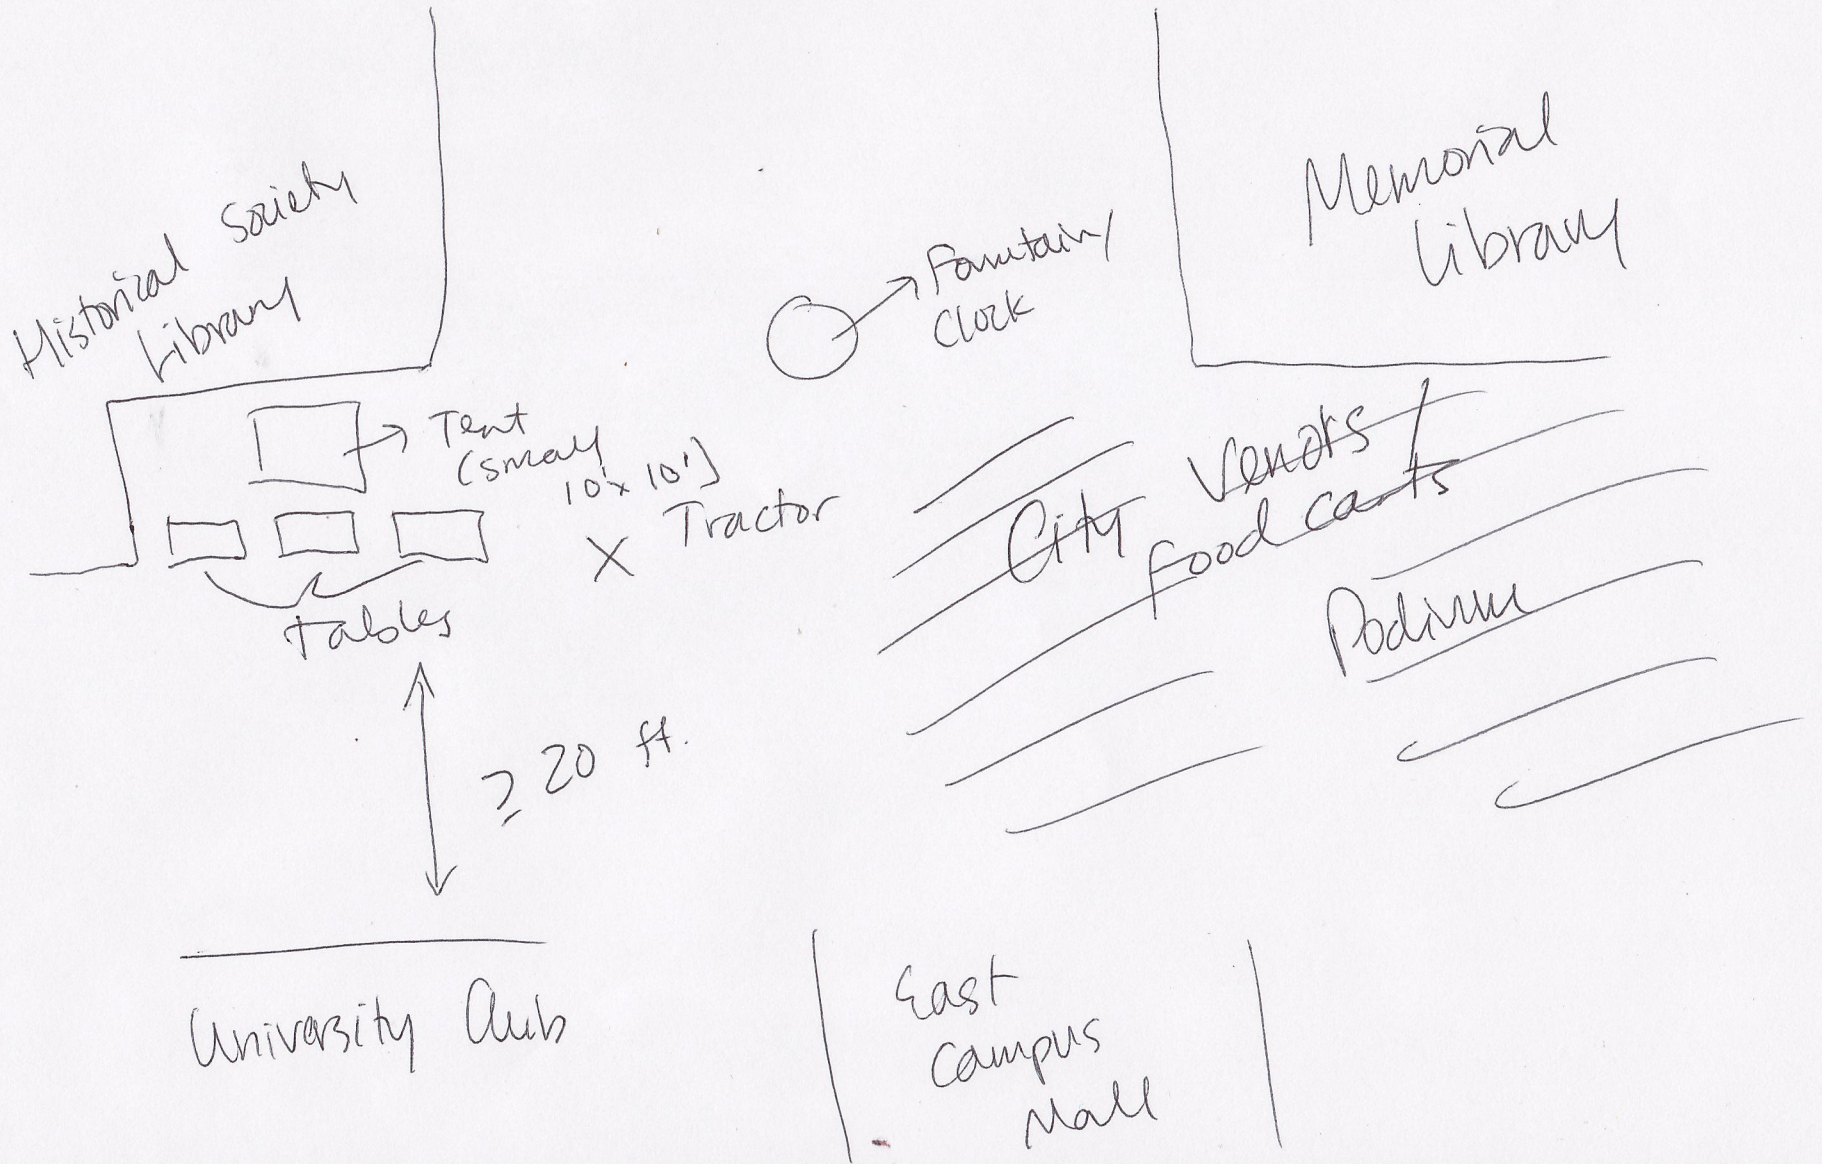 Historical Society
Library
Memorial
Library
Fountain/
Clock
Tent
(small
10'x 10')
X Tractor
tables
City Venors/
Food carts
Podium
≥ 20 ft.
University Club
East
Campus
Mall